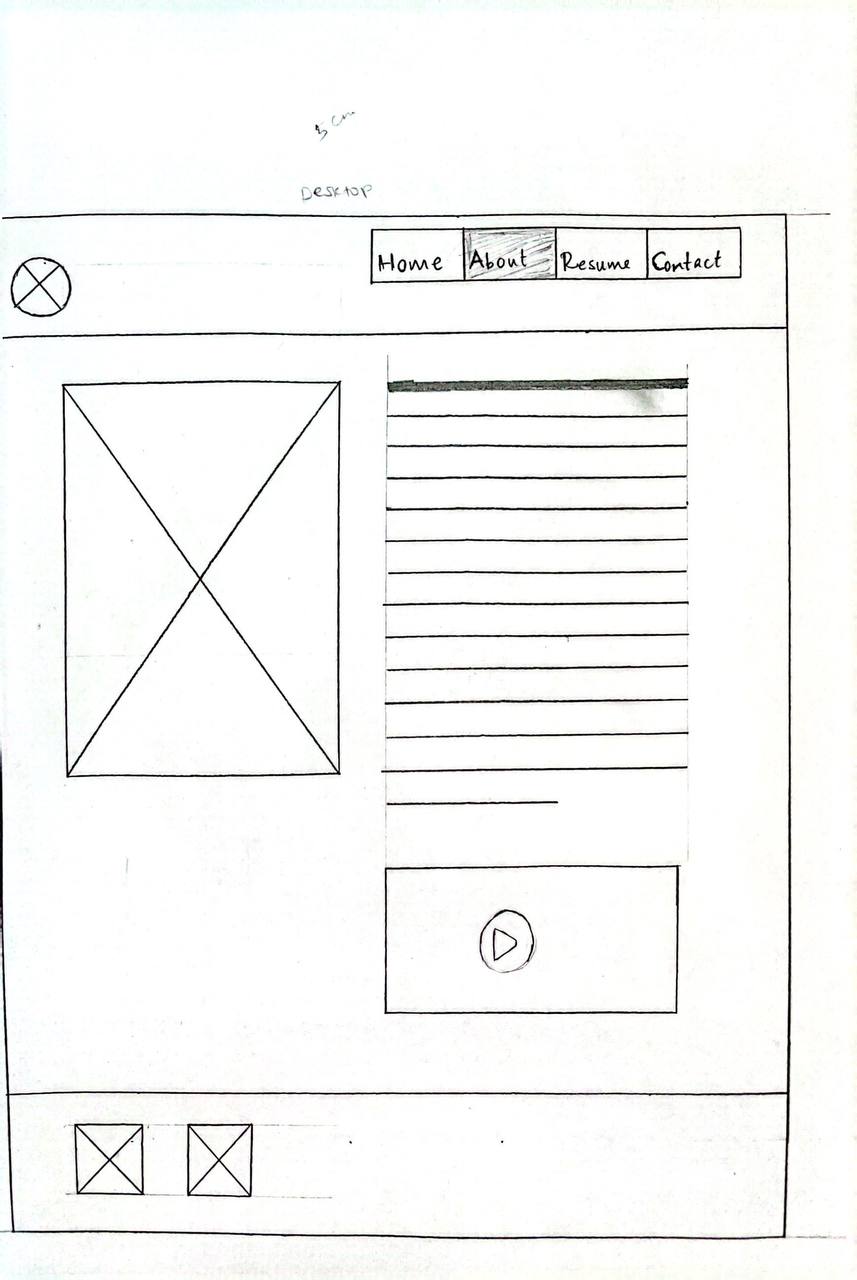 5 cm
Desktop
Home About Resume Contact